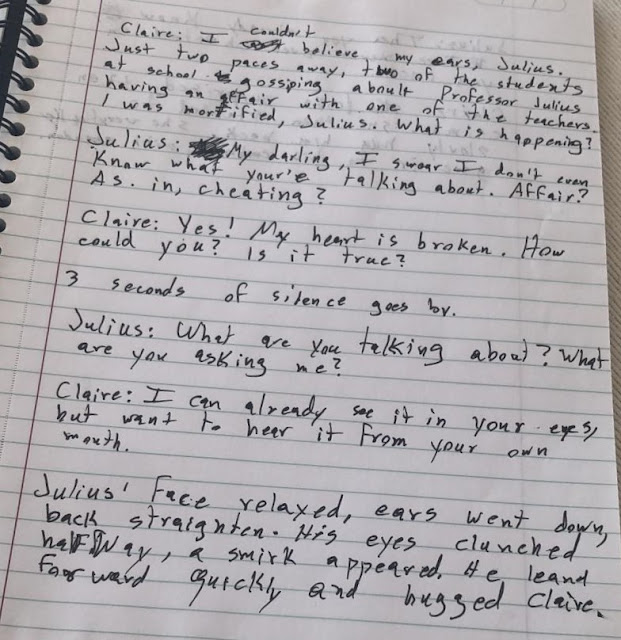 Claire: I couldn't believe my ears, Julius.
Just two paces away, two of the students
at school gossiping aboult Professor Julius
having an affair with one of the teachers.
I was mortified, Julius. What is happening?
Julius: My darling, I swear I don't even
Know what your'e talking about. Affair?
As. in, cheating?
Claire: Yes! My heart is broken. How
could you? Is it true?
3 seconds of silence goes by.
Julius: What are you talking about? What
are you asking me?
Claire: I can already see it in your eyes,
but want to hear it from your own
mouth.
Julius' Face relaxed, ears went down,
back straighten. His eyes clunched
halfway, a smirk appeared. He leand
forward quickly and hugged Claire.